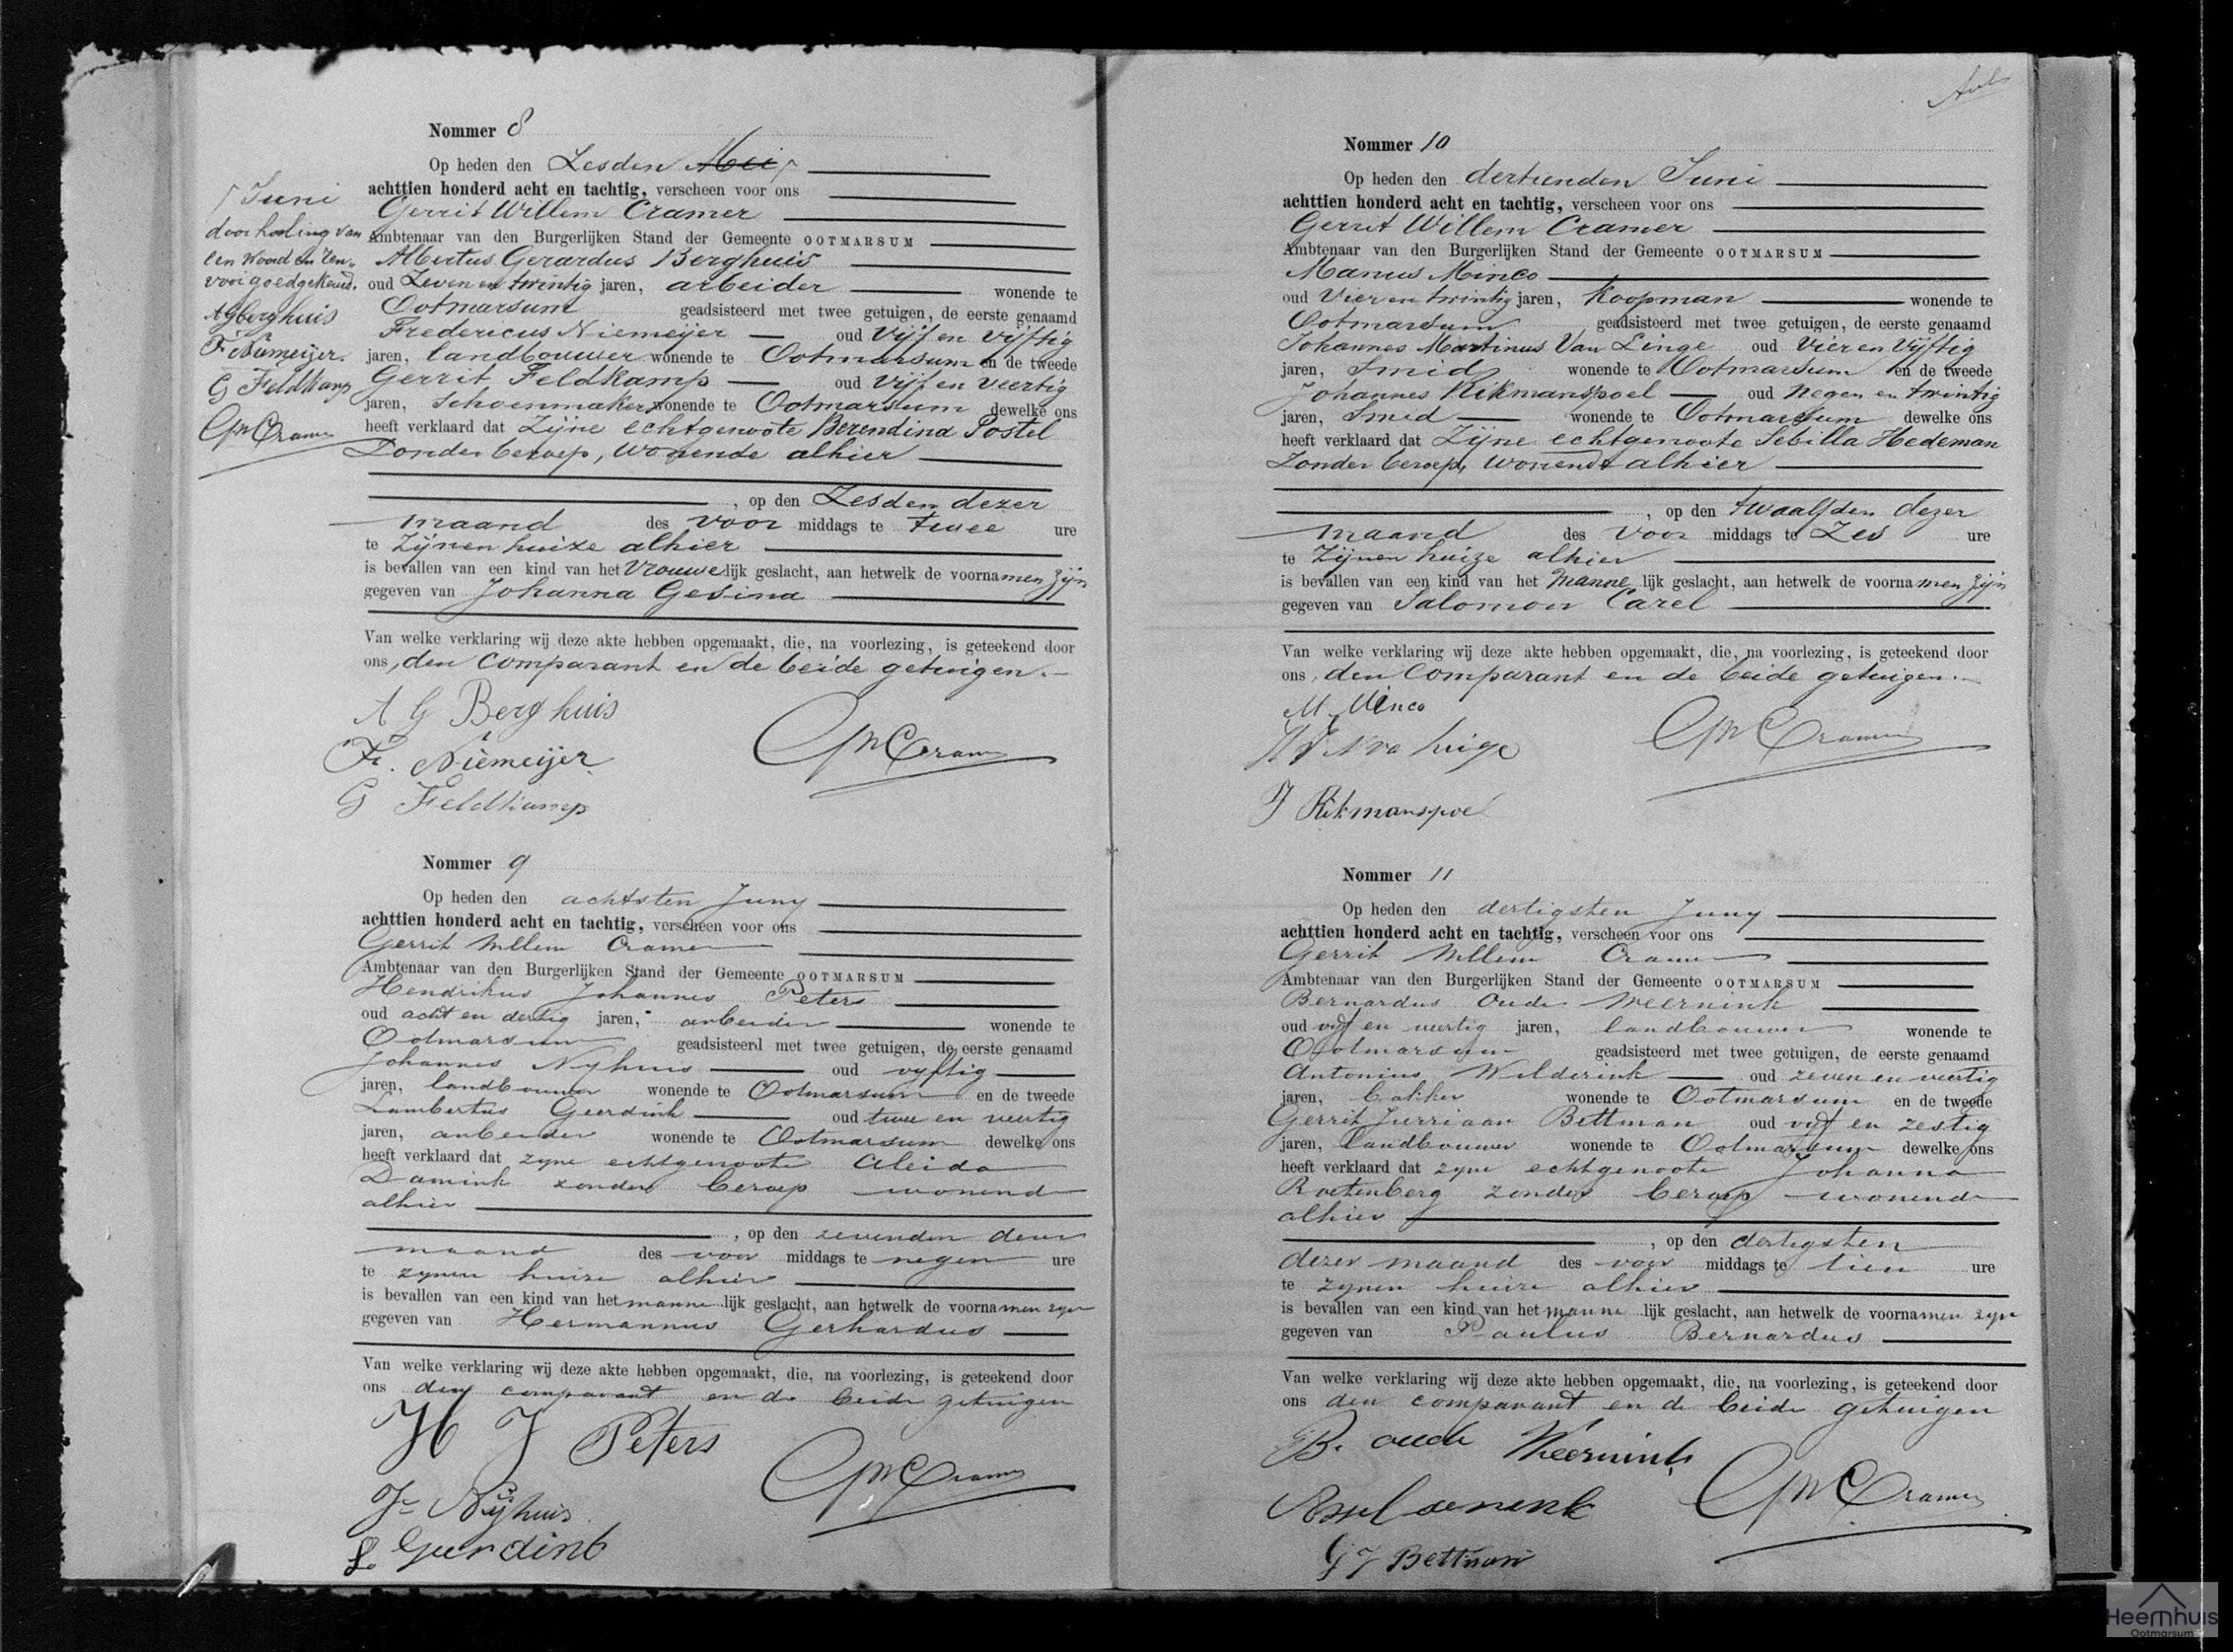 Nommer 8
Op heden den Zesden Mei
achttien honderd acht en tachtig, verscheen voor ons
Gerrit Willem Cramer
Ambtenaar van den Burgerlijken Stand der Gemeente OOTMARSUM
Albertus Gerardus Berghuis
oud Zeven en twintig jaren, arbeider wonende te
Ootmarsum geadsisteerd met twee getuigen, de eerste genaamd
Fredericus Niemeijer oud Vijf en Vijftig
jaren, landbouwer wonende te Ootmarsum en de tweede
Gerrit Feldkamp oud Vijf en Veertig
jaren, Schoenmaker wonende te Ootmarsum dewelke ons
heeft verklaard dat Zijne echtgenoote Berendina Postel
Zonder beroep, Wonende alhier
, op den Zesden dezer
maand des voor middags te twee ure
te Zijnen huize alhier
is bevallen van een kind van het Vrouwelijk geslacht, aan hetwelk de voornamen zijn
gegeven van Johanna Gesina
Van welke verklaring wij deze akte hebben opgemaakt, die, na voorlezing, is geteekend door
ons, den Comparant en de beide getuigen.
A G Berghuis
Fr. Niemeijer
G Feldkamp
GWCramer
Juni
doorhaling van
een woord en ren-
vooi goedgekeurd.
AGBerghuis
F Niemeijer.
G Feldkamp
GWCramer
Nommer 9
Op heden den achtsten Juny
achttien honderd acht en tachtig, verscheen voor ons
Gerrit Willem Cramer
Ambtenaar van den Burgerlijken Stand der Gemeente OOTMARSUM
Hendrikus Johannes Peters
oud acht en dertig jaren, arbeider wonende te
Ootmarsum geadsisteerd met twee getuigen, de eerste genaamd
Johannes Nyhuis oud vyftig
jaren, landbouwer wonende te Ootmarsum en de tweede
Lambertus Geerdink oud twee en veertig
jaren, arbeider wonende te Ootmarsum dewelke ons
heeft verklaard dat zyne echtgenoote Aleida
Damink zonder beroep wonende
alhier
, op den zevenden dezer
maand des voor middags te negen ure
te zynen huize alhier
is bevallen van een kind van het mannelijk geslacht, aan hetwelk de voornamen zyn
gegeven van Hermannus Gerhardus
Van welke verklaring wij deze akte hebben opgemaakt, die, na voorlezing, is geteekend door
ons den comparant en de beide getuigen
H J Peters
GWCramer
J Nijhuis
L. Geerdink
Nommer 10
Op heden den dertienden Juni
achttien honderd acht en tachtig, verscheen voor ons
Gerrit Willem Cramer
Ambtenaar van den Burgerlijken Stand der Gemeente OOTMARSUM
Manus Minco
oud Vier en twintig jaren, Koopman wonende te
Ootmarsum geadsisteerd met twee getuigen, de eerste genaamd
Johannes Martinus Van Linge oud Vier en Vijftig
jaren, Smid wonende te Ootmarsum en de tweede
Johannes Rikmanspoel oud Negen en twintig
jaren, Smid wonende te Ootmarsum dewelke ons
heeft verklaard dat Zijne echtgenoote Sebilla Hedeman
Zonder beroep, wonende alhier
, op den twaalfden dezer
maand des voor middags te Zes ure
te Zijnen huize alhier
is bevallen van een kind van het mannelijk geslacht, aan hetwelk de voornamen zijn
gegeven van Salomon Carel
Van welke verklaring wij deze akte hebben opgemaakt, die, na voorlezing, is geteekend door
ons, den Comparant en de beide getuigen.
M Minco
GWCramer
J Rikmanspoel
Nommer 11
Op heden den dertigsten Juny
achttien honderd acht en tachtig, verscheen voor ons
Gerrit Willem Cramer
Ambtenaar van den Burgerlijken Stand der Gemeente OOTMARSUM
Bernardus Oude Meernink
oud vyf en veertig jaren, landbouwer wonende te
Ootmarsum geadsisteerd met twee getuigen, de eerste genaamd
Antonius Wilderink oud zeven en veertig
jaren, bakker wonende te Ootmarsum en de tweede
Gerrit Jurriaan Bettman oud vyf en zestig
jaren, landbouwer wonende te Ootmarsum dewelke ons
heeft verklaard dat zyne echtgenoote Johanna
Roetenberg zonder beroep wonende
alhier
, op den dertigsten
dezer maand des voor middags te tien ure
te zynen huize alhier
is bevallen van een kind van het mannelijk geslacht, aan hetwelk de voornamen zyn
gegeven van Paulus Bernardus
Van welke verklaring wij deze akte hebben opgemaakt, die, na voorlezing, is geteekend door
ons den comparant en de beide getuigen
B. oude Meernink
GWCramer
G J Bettman
Heemhuis
Ootmarsum